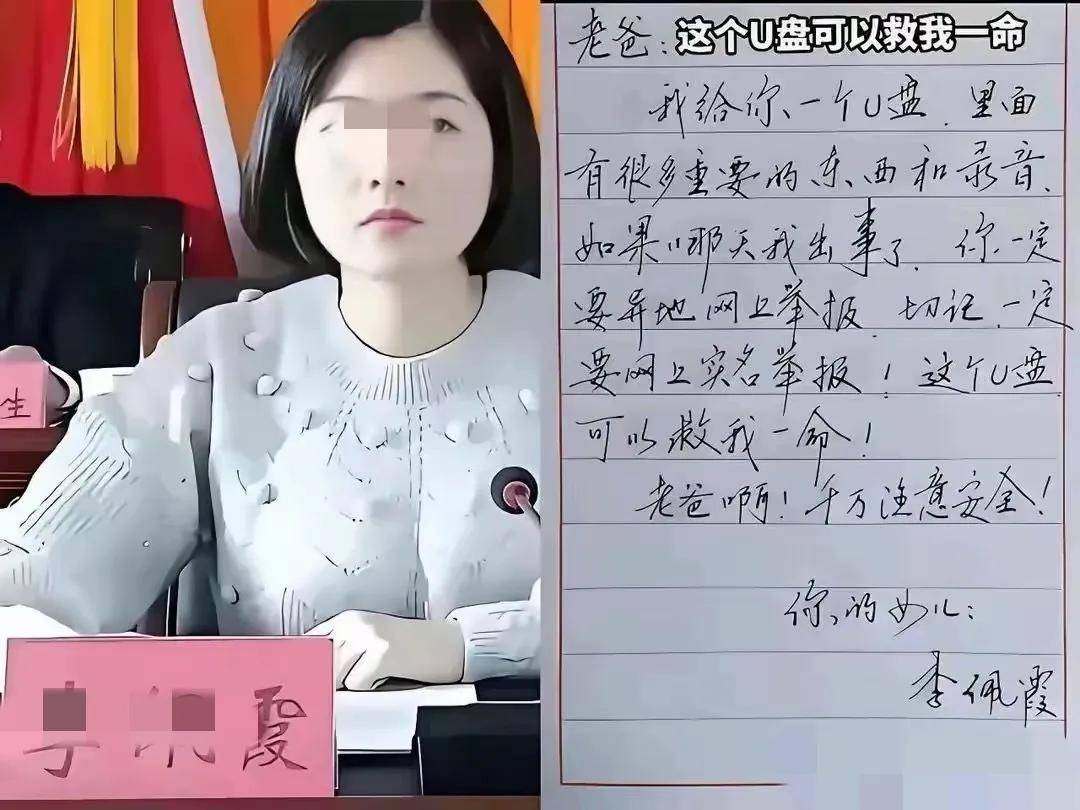 生
霞
这个U盘可以救我一命
老爸:
我给你一个U盘，里面
有很多重要的东西和录音、
如果哪天我出事了，你一定
要异地网上举报，切记，一定
要网上实名举报！这个U盘
可以救我一命！
老爸啊！千万注意安全！
你的女儿：
李佩霞